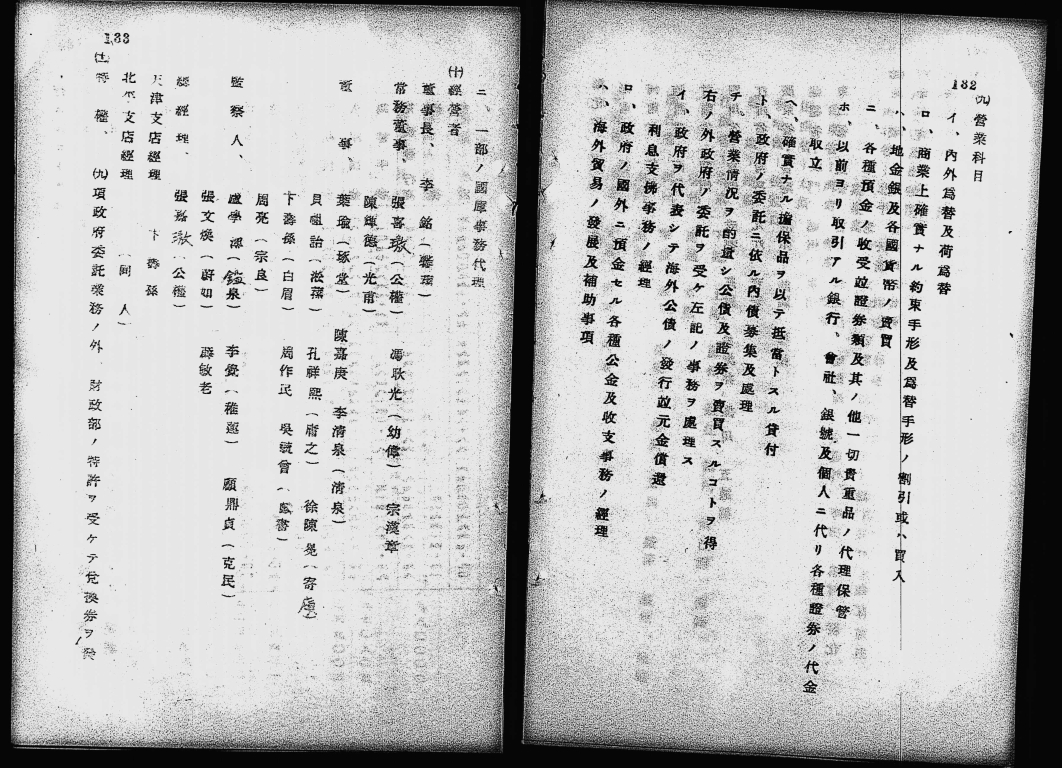 132
(九)營業科目
イ、內外爲替及荷爲替
ロ、商業上確實ナル約束手形及爲替手形ノ割引或ハ買入
ハ、地金銀及各國貨幣ノ賣買
ニ、各種預金ノ收受竝證券類及其ノ他一切貴重品ノ代理保管
ホ、以前ヨリ取引アル銀行、會社、銀號及個人ニ代リ各種證券ノ代金
取立
ヘ、確實ナル擔保品ヲ以テ抵當トスル貸付
ト、政府ノ委託ニ依ル內債募集及處理
チ、營業情況ヲ酌量シ公債及證券ヲ賣買スルコトヲ得
右ノ外政府ノ委託ヲ受ケ左記ノ事務ヲ處理ス
イ、政府ヲ代表シテ海外公債ノ發行竝元金償還
利息支拂事務ノ經理
ロ、政府ノ國外ニ預金セル各種公金及收支事務ノ經理
ハ、海外貿易ノ發展及補助事項
133
ニ、一部ノ國庫事務代理
(十)經營者
董事長、 李 銘(馥蓀)
常務董事、 張嘉璈(公權) 馮耿光(幼偉) 宗漢章
陳輝德(光甫)
董 事、 葉瑜(琢堂) 陳嘉庚 李清泉(清泉)
貝祖詒(淞蓀) 孔祥熙(庸之) 徐陳冕(寄廎)
卞壽孫(白眉) 周作民 吳 曾(
周亮(宗良)
監察人、 盧學溥(鑑泉) 李 (稚蓮) 顧鼎貞(克民)
張文煥(蔚如) 敏老
總經理、 張嘉璈(公權)
天津支店經理 卞壽孫
北平支店經理 (同人)
特權、 (九)項政府委託業務ノ外、財政部ノ特許ヲ受ケテ兌換券ヲ發